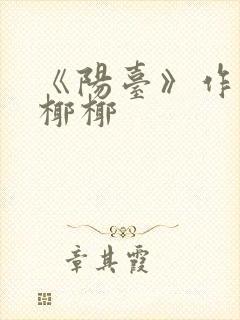 《陽臺》作
椰椰
章其霞